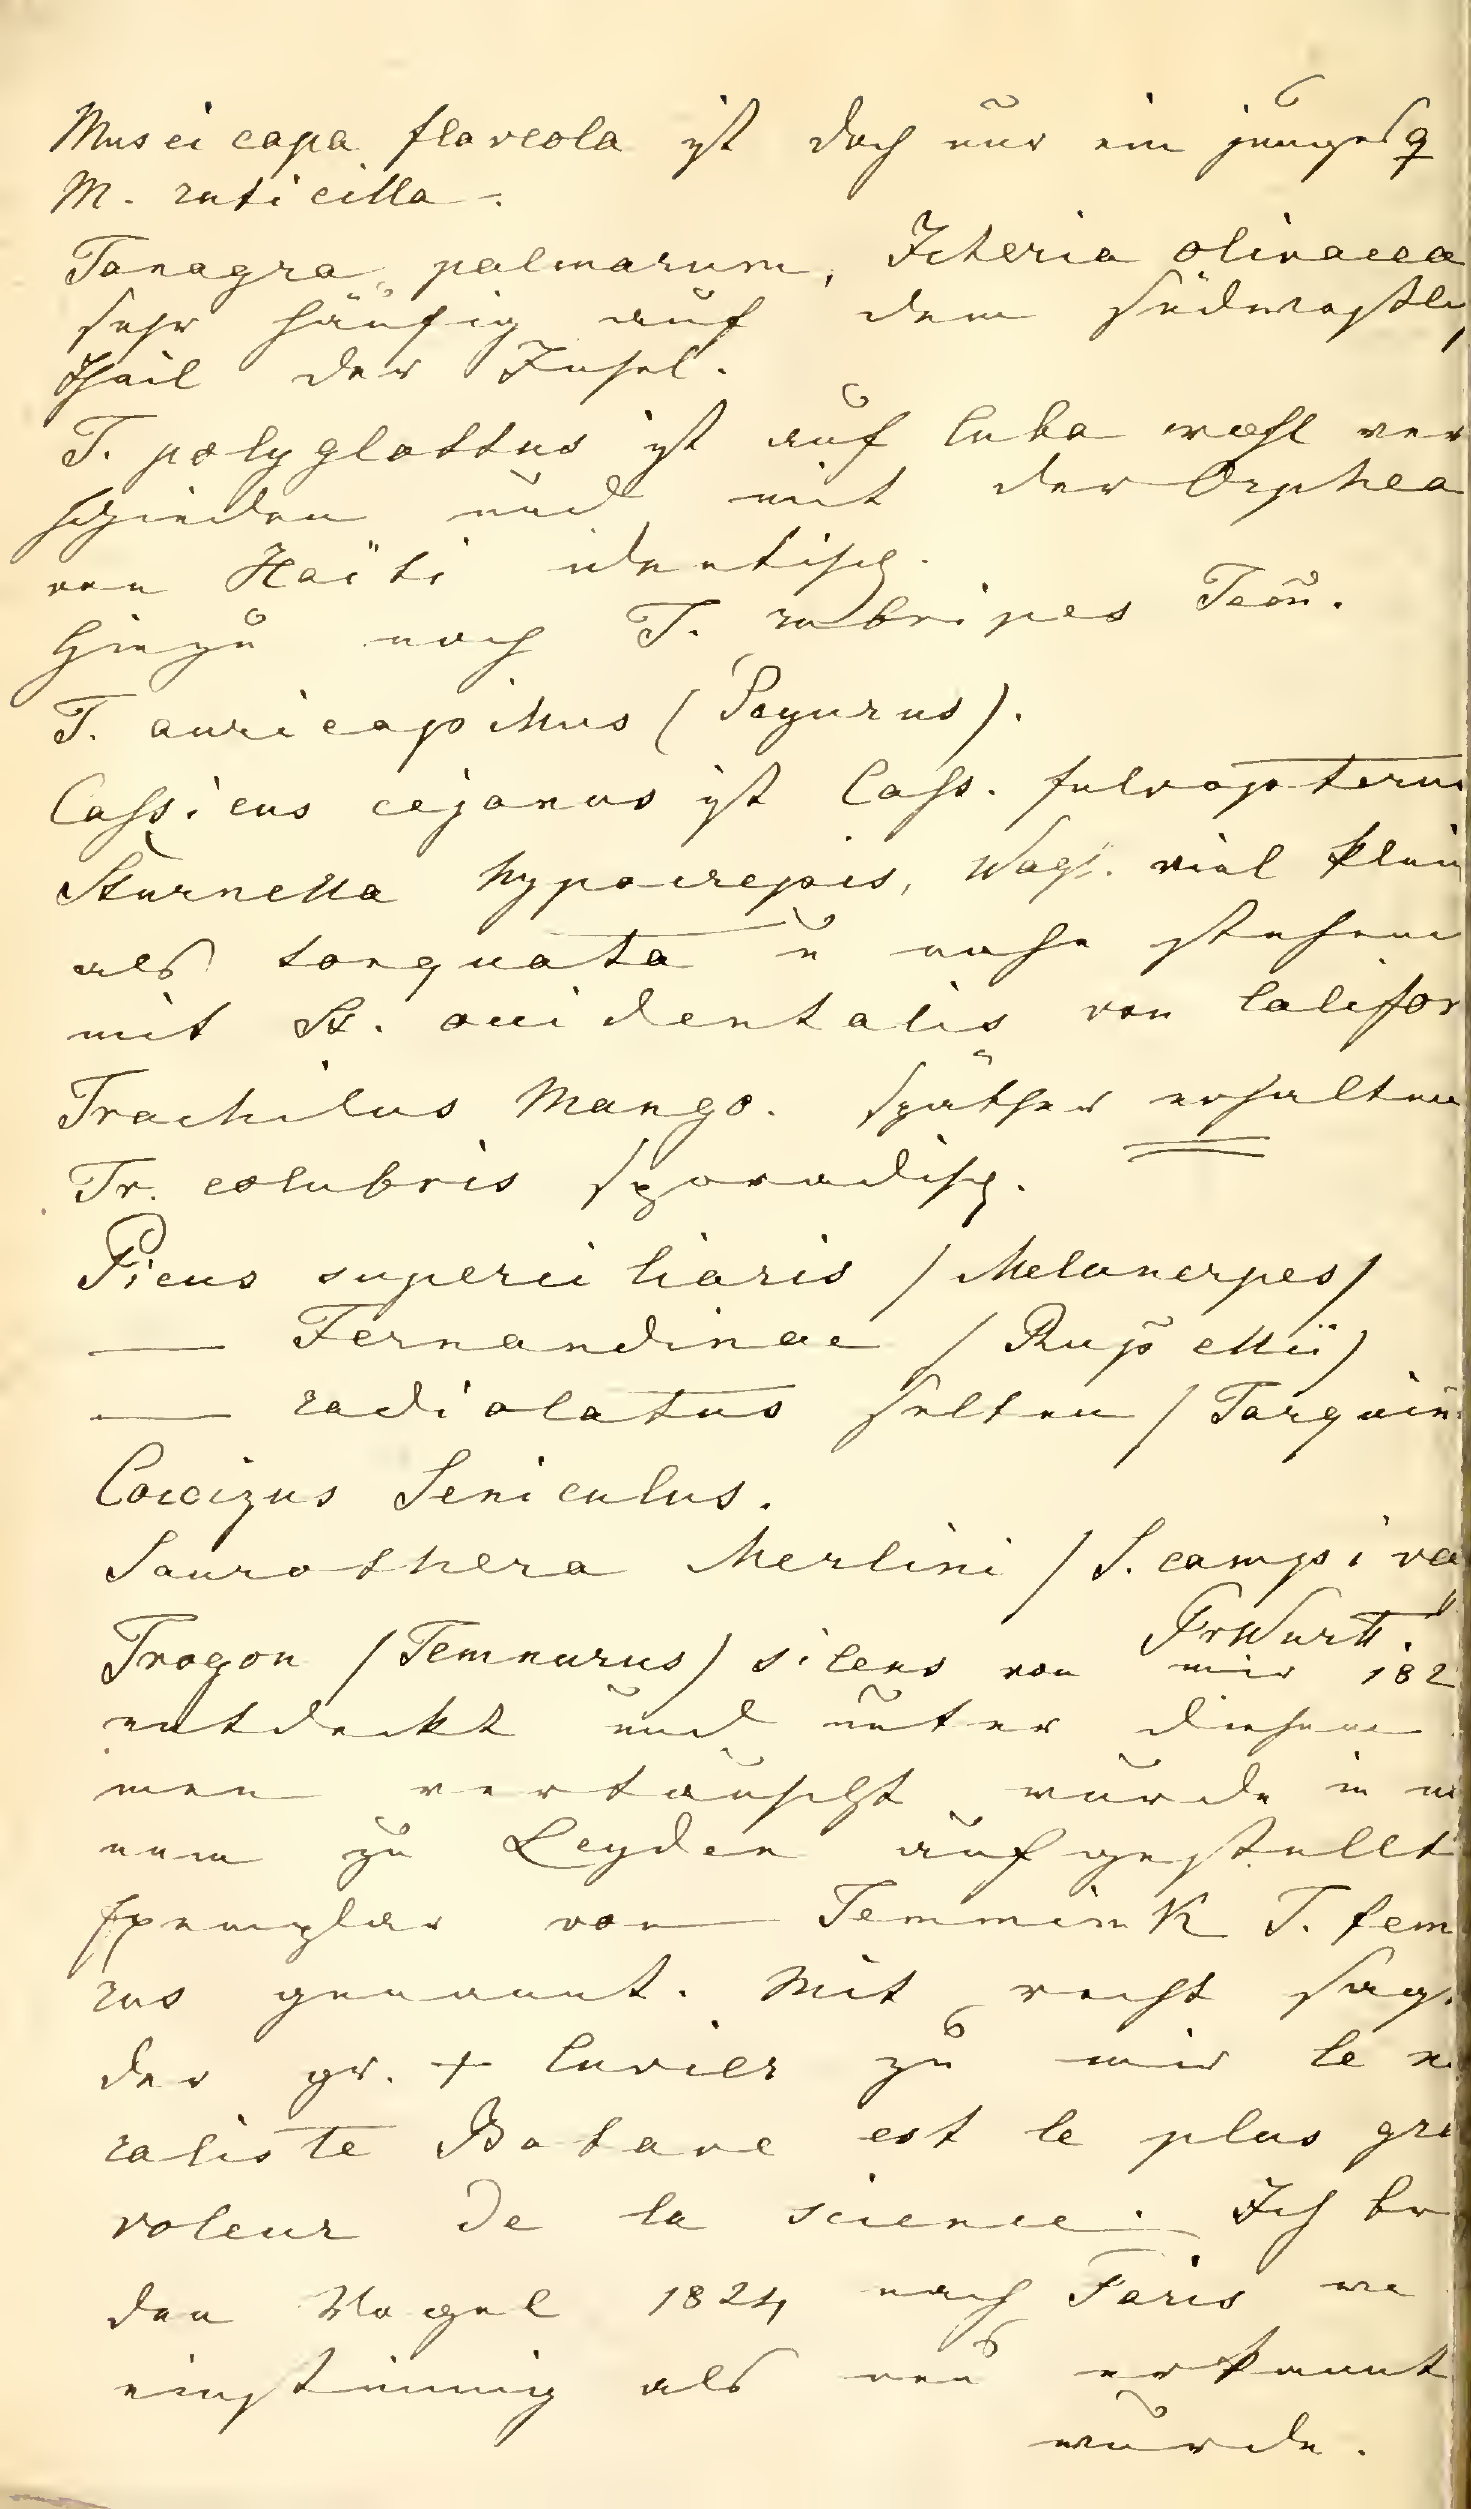 Muscicapa flaveola ist doch nur ein junges ♀
M. ruticilla.
Tanagra palmarum, Icteria olivacea
sehr häufig auf dem südwestl,
Theil der Insel.
T. polyglottus ist auf Cuba wohl ver
schieden und mit der Orphea
von Haïti identisch.
Hiezu noch T. rubripes Tem̃.
T. auricapillus (Seyurus).
Cassicus cejanus ist Cass. fulvopterus
Sturnella hypocrepis, Wagl. viel klein
als torquata ũ nahe stehend
mit St. occidentalis von Califor
Trochilus Mango. später erhalten
Tr. colubris sporadisch.
Picus superciliaris / Melanerpes /
— Fernandinae / Rup̃ellii)
— radiolatus selten / Tarquin
Coccizus Seniculus.
Saurothera Merlini / S. campi va
PrWurtt.
Trogon / Temnurus) silens von mir 182
entdeckt und unter diesem
men vertauscht wurde in
num zu Leyden aufgestellt
Exemplar von Temmink T. tem
rus genannt. Mit recht sag.
der gr. + Cuvier zu mir le n
raliste Batave est le plus gra
voleur de la science. Ich br
den Vogel 1824 nach Paris wo
einstimmig als neu erkannt
wurde.